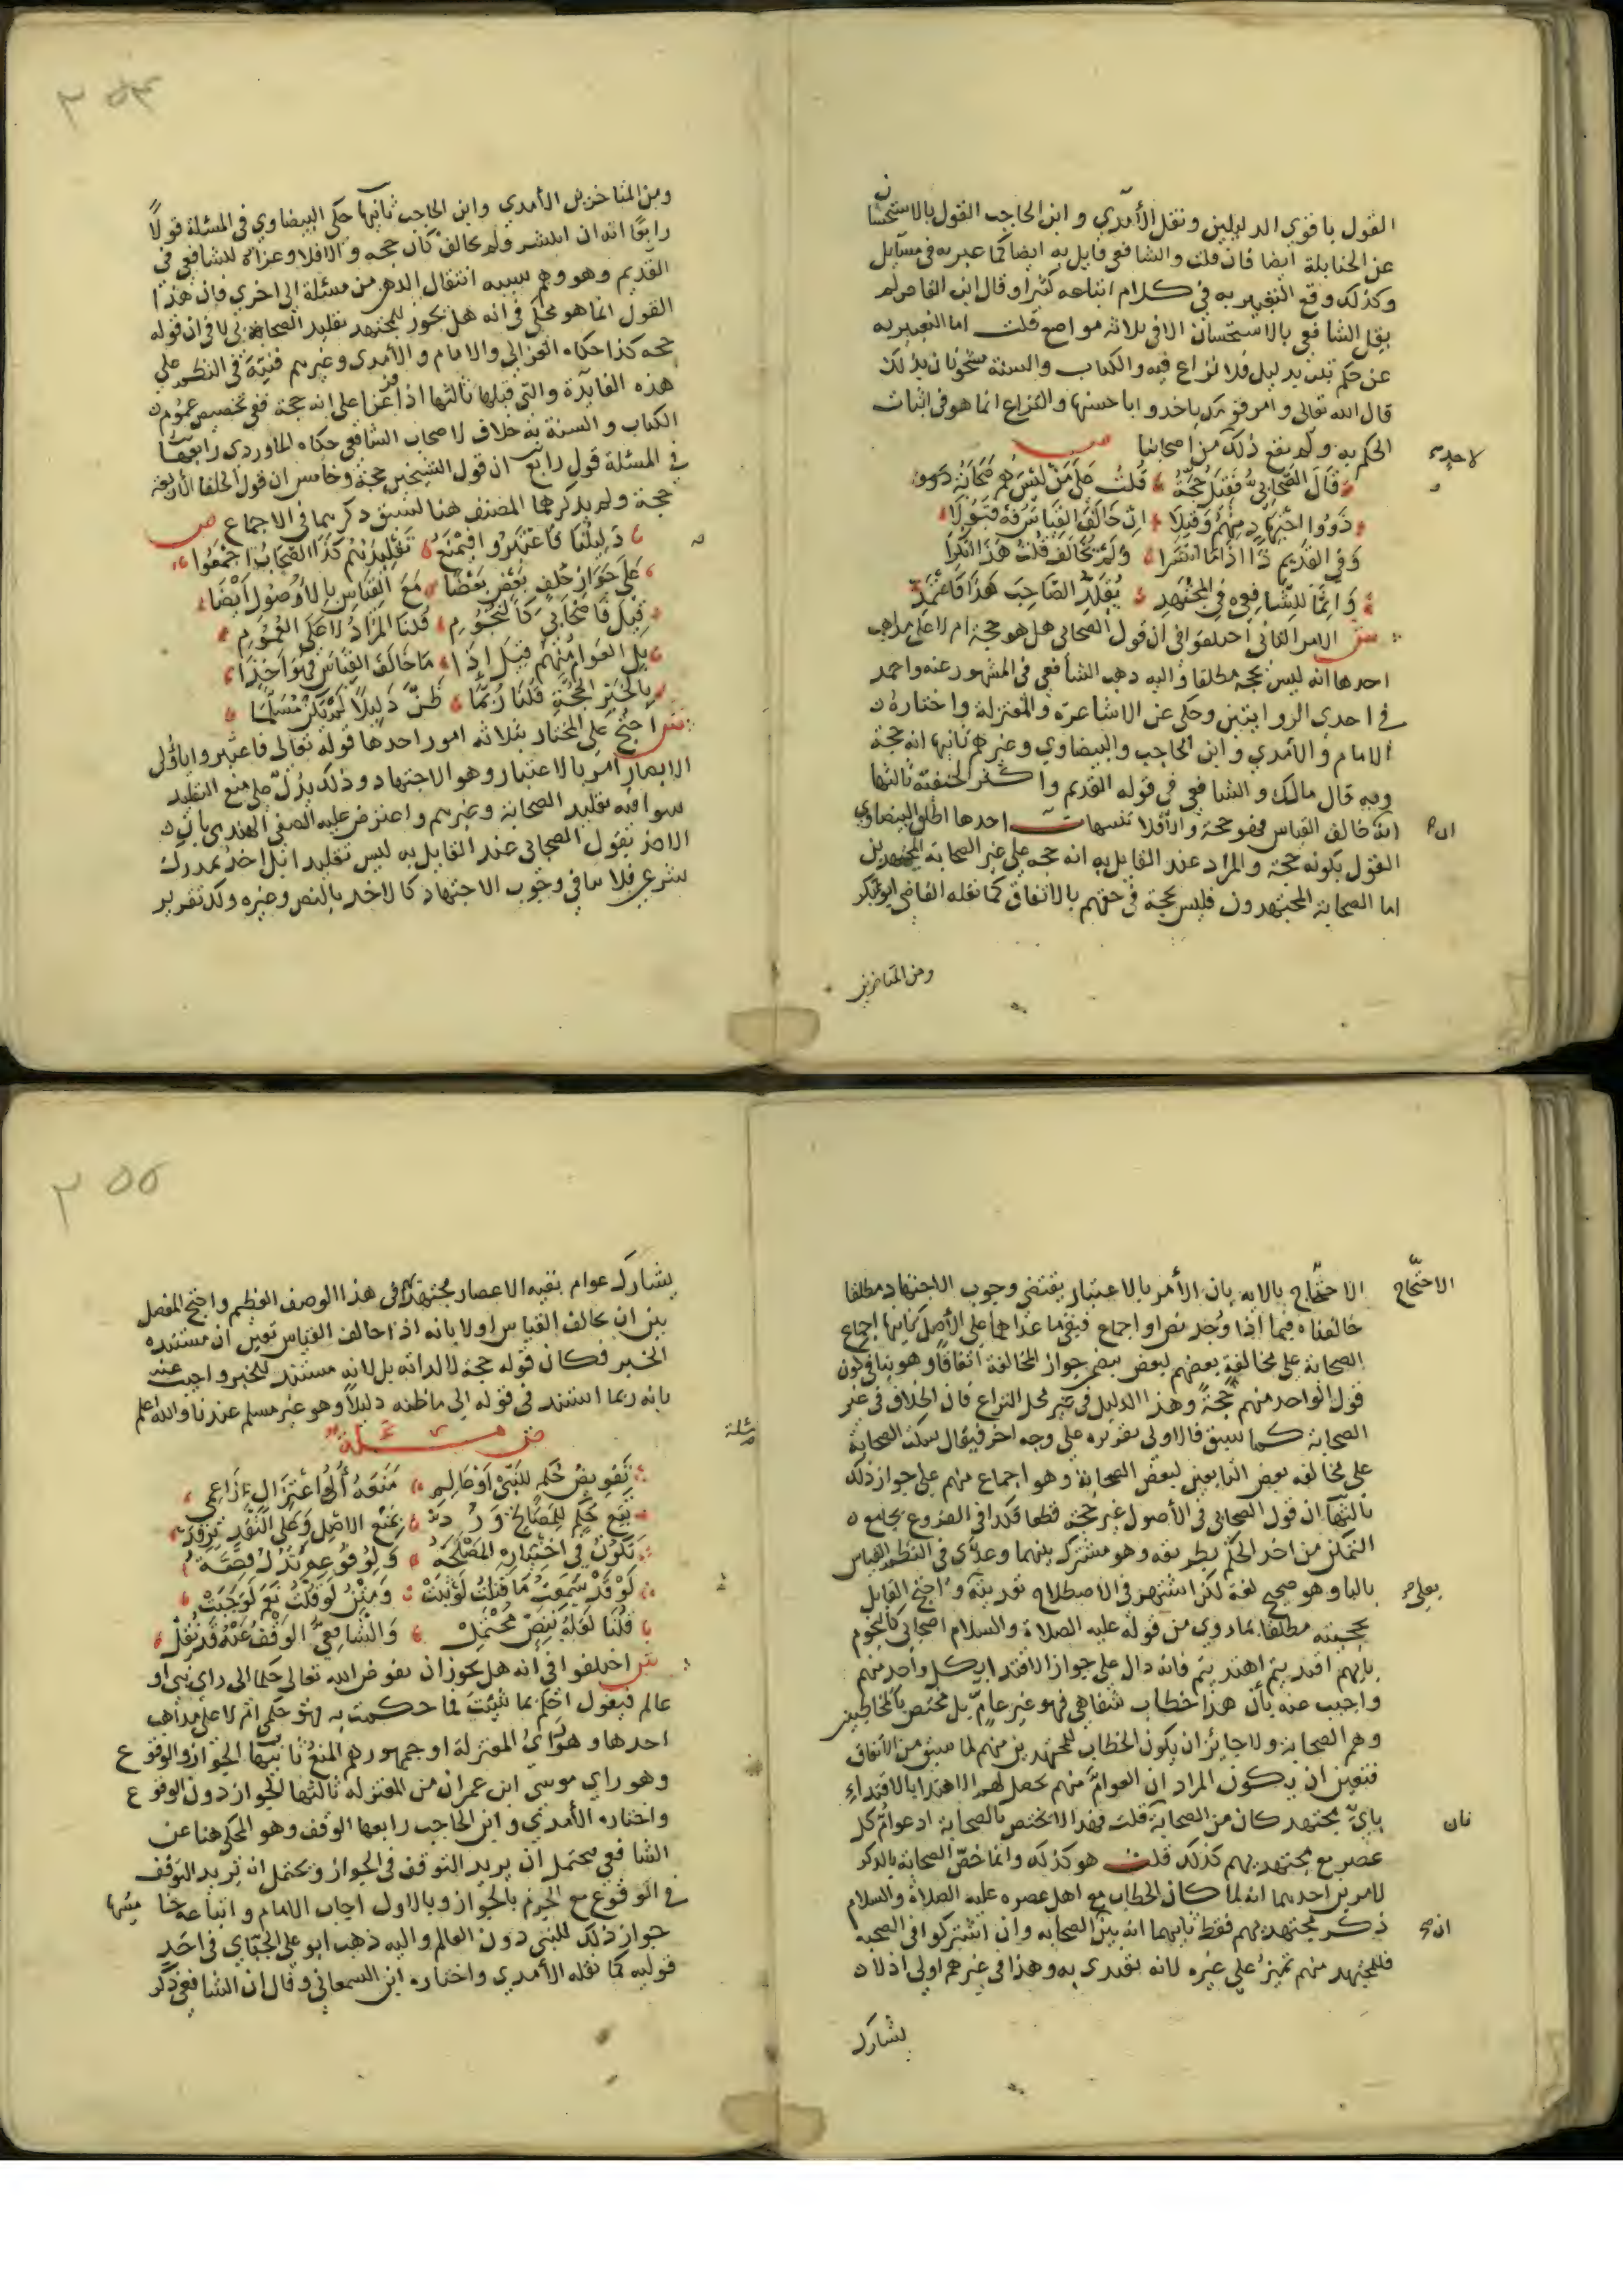 القول باقوي الدليلين ونقل الأمدي وابن الحاجب القول بالاستحسان
عن الحنابلة ايضا فان قلت والشافعي قايل به ايضا كما عبر به في مسايل
وكذلك وقع التعبير به في كلام اتباعه كثيرا وقال ابن القاص لم
يقل الشافعي بالاستحسان الا في ثلاثة مواضع قلت اما التعبير به
عن حكم ثبت بدليل فلا نزاع فيه والكتاب والسنة مشحونان بذلك
قال الله تعالى وامر قومك ياخدوا باحسنها والنزاع انما هو في اثبات
الحكم به ولم يقع ذلك من اصحابنا ص
لاحد
قَالَ الصَّحَابِيُّ فَقِيلَ حُجَّةُ قُلْتُ عَلَى مَنْ لَيْسَ هُمْ صَحَابَةُ
ذَوُوا اجْتِهَادٍ مِنْهُمُ وَقِيلَا اِنْ خَالَفَ القِيَاسَ
وَفِي القَدِيمِ ذَا اذَا مَا انْتَشَرَا وَلَمْ يُخَالَفْ قُلْتُ هَذَا
وَاِنَّمَا لِلشَّافِعِي فِي المُجْتَهِدِ يُقَلِّدُ الصَّاحِبَ هَذَا فَاعْتَمِدِ
ش الامر الثاني اختلفوا في ان قول الصحابي هل هو حجة ام لا على مذاهب
احدها انه ليس بحجة مطلقا واليه ذهب الشافعي في المشهور عنه واحمد
في احدى الروايتين وحكي عن الاشاعرة والمعتزلة واختاره
الامام والأمدي وابن الحاجب والبيضاوي وغيرهم ثانيها انه حجة
وبه قال مالك والشافعي في قوله القديم واكثر الحنفية ثالثها
انه خالف القياس فهو حجة والافلا تنبيهات احدها اطلق البيضاوي
ان
القول بكونه حجة والمراد عند القايل به انه حجة على غير الصحابة المجتهدين
اما الصحابة المجتهدون فليس بحجة في حقهم بالاتفاق كما نقله القاضي ابو بكر
ومن المتاخرين
ومن المتاخرين الأمدي وابن الحاجب ثانيها حكى البيضاوي في المسئلة قولًا
رابعًا انه ان انتشر ولم يخالف كان حجة والافلا وعزاه للشافعي في
القديم وهو وهم سببه انتقال الذهن من مسئلة الى اخري فان هذا
القول انما هو محكي في انه هل يجوز للمجتهد تقليد الصحابة لا في ان قوله
حجة كذا حكاه الغزالي والامام والأمدي وغيرهم فنبه في النظم علي
هذه الفايدة والتي قبلها ثالثها اذا فرعنا على انه حجة ففي تخصيص عموم
الكتاب والسنة به خلاف لاصحاب الشافعي حكاه الماوردي رابعها
في المسئلة قول رابع ان قول الشيخين حجة وخامس ان قول الخلفا الأربعة
حجة ولم يذكرهما المصنف هنا لسبق ذكرهما في الاجماع ص
دَلِيلُنَا فَاعْتَبِرُوا فَيَمْتَنِعُ تَقْلِيدُهُمْ كَذَا الصَّحَابُ اجْمَعُوا
عَلَى جَوَازِ خُلْفِ بَعْضٍ بَعْضَا مَعَ القِيَاسِ بِالأُصُولِ أَيْضَا
قِيلَ فَاصْحَابِي كَالنُّجُومِ قُلْنَا المُرَادُ لَا عَلَى العُمُومِ
بَلِ العَوَامُ مِنْهُمُ قِيلَ إِذَا مَا خَالَفَ القِيَاسَ فَهْوَ اخَذَا
بِالخَبَرِ الحُجَّةِ قُلْنَا رُبَّمَا ظَنَّ دَلِيلًا لَمْ يَكُنْ مُسَلَّمَا
ش احتج على المختار بثلاثة امور احدها قوله تعالى فاعتبروا يا اولى
الابصار امر بالاعتبار وهو الاجتهاد وذلك يدل على منع التقليد
سوا فيه تقليد الصحابة وغيرهم واعترض عليه الصفي الهندي بان
الاخذ بقول الصحابي عند القايل به ليس تقليدا بل اخذ بمدرك
شرعي فلا ينافي وجوب الاجتهاد كالاخذ بالنص وغيره وكذ تقرير
الاحتجاج
الاحتجاج بالاية بان الأمر بالاعتبار يقتضي وجوب الاجتهاد مطلقا
خالفناه فيما اذا وجد نص او اجماع فيبقى ما عداهما على الأصل ثانيها اجماع
الصحابة على مخالفة بعضهم لبعض جواز المخالفة اتفاقًا وهو ينافي كون
قول الواحد منهم حجةً وهذا الدليل في غير محل النزاع فان الخلاف في غير
الصحابة كما سبق فالاولى تقريره علي وجه اخر فيقال سكت الصحابة
على مخالفة بعض التابعين لبعض الصحابة وهو اجماع منهم على جواز ذلك
ثالثها ان قول الصحابي في الأصول غير حجة قطعا فكذا في الفروع بجامع
التمكن من اخذ الحكم بطريقه وهو مشترك بينهما وعدّى في النظم القياس
بالبا وهو صحيح لغة لكن اشتهر في الاصطلاح تعديته واحتج القايل
بعلى
بحجيته مطلقا بما روي من قوله عليه الصلاة والسلام اصحابي كالنجوم
بايهم اقتديتم اهتديتم فانه دال علي جواز الاقتدا بكل واحد منهم
واجيب عنه بأن هذا خطاب شفاهي فهو غير عامّ بل مختص بالمخاطبين
وهم الصحابة ولا جائز ان يكون الخطاب للمجتهدين منهم لما سبق من الاتفاق
فتعين ان يكون المراد ان العوامَّ منهم يحصل لهم الاهتدا بالاقتداءِ
بايّ مجتهد كان من الصحابة قلت فهذا لا يختص بالصحابة اذ عوام كل
فان
عصر مع مجتهديهم كذلك قلت هو كذلك وانما خصّ الصحابة بالذكر
لامرين احدهما انه لما كان الخطاب مع اهل عصره عليه الصلاة والسلام
ذكر مجتهديهم فقط ثانيهما انه بين الصحابة وان اشتركوا في الصحبة
ان
فللمجتهد منهم تميز على غيره لانه يقتدى به وهذا في غيرهم اولي اذ لا
يشارك
يشارك عوام بقية الاعصار مجتهديهم في هذا الوصف العظيم واحتج المفصل
بين ان يخالف القياس اولا بانه اذا خالف القياس تعين ان مستنده
الخبر فكان قوله حجة لا لذاته بل لانه مستند للخبر واجيب عنه
بانه ربما استند في قوله الى ما ظنه دليلًا وهو غير مسلم عندنا والله اعلم
ص مسئلة
مسئلة
تَفْوِيضُ حُكْمٍ لِلنَّبِيْ اَوْ عَالِمِ مَنَعَهُ أُلُوا اعْتِزَالٍ زَاعِمِي
تَتْبَعُ حُكْمٍ لِلْمَصَالِحْ وَرُدَّتْ بِمَنْعِ الاصْلِ وَعَلَى
تَكُونُ فِي اخْتِيَارِهِ المَصْلَحَهْ وَلِوُقُوعِهِ
لَوْ قَدْ سَمِعْتُ مَا قَتَلْتُ لَثَبَتْ وَمِثْلُ لَوْ قُلْتُ نَعَمْ لَوَجَبَتْ
قُلْنَا لَعَلَّهُ بِنَصٍّ مُحْتَمِلْ وَالشَّافِعِيُّ الوَقْفُ عَنْهُ قَدْ نُقِلْ
ش اختلفوا في انه هل يجوز ان يفوض الله تعالى حكما الى راي نبي او
عالم فيقول احكم بما شئت فما حكمت به فهو حكمي ام لا على مذاهب
احدها وهو راي المعتزلة او جمهورهم المنع ثانيها الجواز والوقوع
وهو راي موسى ابن عمران من المعتزلة ثالثها الجواز دون الوقوع
واختاره الأمدي وابن الحاجب رابعها الوقف وهو المحكي هنا عن
الشافعي يحتمل ان يريد التوقف في الجواز ويحتمل انه يريد التوقف
في الوقوع مع الجزم بالجواز وبالاول اجاب الامام واتباعه
جواز ذلك للنبي دون العالم واليه ذهب ابو علي الجبّاي في احد
قوليه كما نقله الأمدي واختاره ابن السمعاني وقال ان الشافعي ذكر